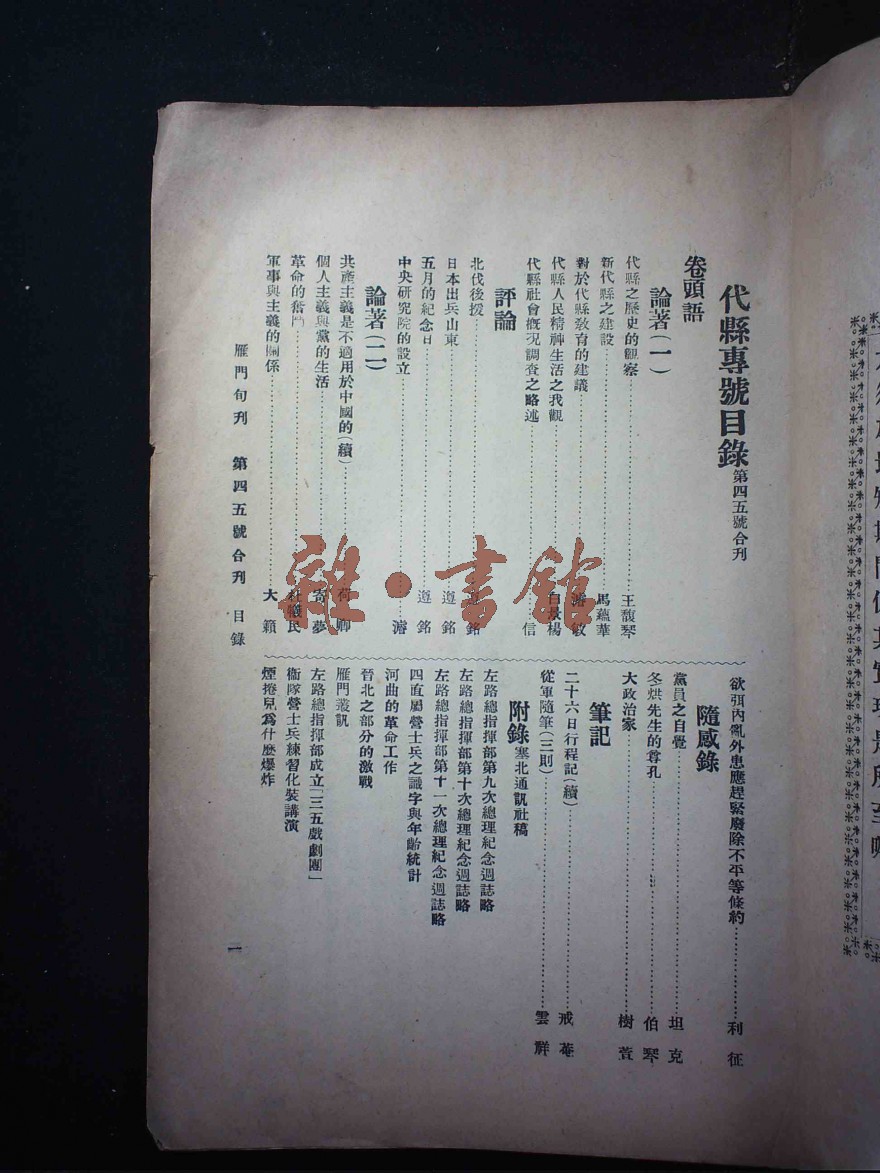 代縣專號目錄 第四五號合刊
卷頭語
論著(一)
代縣之歷史的觀察 王馥琴
新代縣之建設 馬蘊華
對於代縣教育的建議 濬敏
代縣人民精神生活之我觀 白景楊
代縣社會概况調查之略述 信
評論
北伐後援 遵銘
日本出兵山東 遵銘
五月的紀念日 遵銘
中央研究院的設立 濬
論著(二)
共產主義是不適用於中國的(續) 荷卿
個人主義與黨的生活 寄夢
革命的奮鬥 杜犧民
軍事與主義的關係 大籟
欲弭內亂外患應趕緊廢除不平等條約 利征
隨感錄
黨員之自覺 坦克
冬烘先生的尊孔 伯琴
大政治家 樹萱
筆記
二十六日行程記(續) 戒菴
從軍隨筆(三則) 雲祥
附錄 塞北通訊社稿
左路總指揮部第九次總理紀念週誌略
左路總指揮部第十次總理紀念週誌略
左路總指揮部第十一次總理紀念週誌略
四直屬營士兵之識字與年齡統計
河曲的革命工作
晉北之部分的激戰
雁門叢訊
左路總指揮部成立「三五戲劇團」
衞隊營士兵練習化裝講演
煙捲兒爲什麼爆炸
雁門旬刊 第四五號合刊 目錄
一
雜·書館